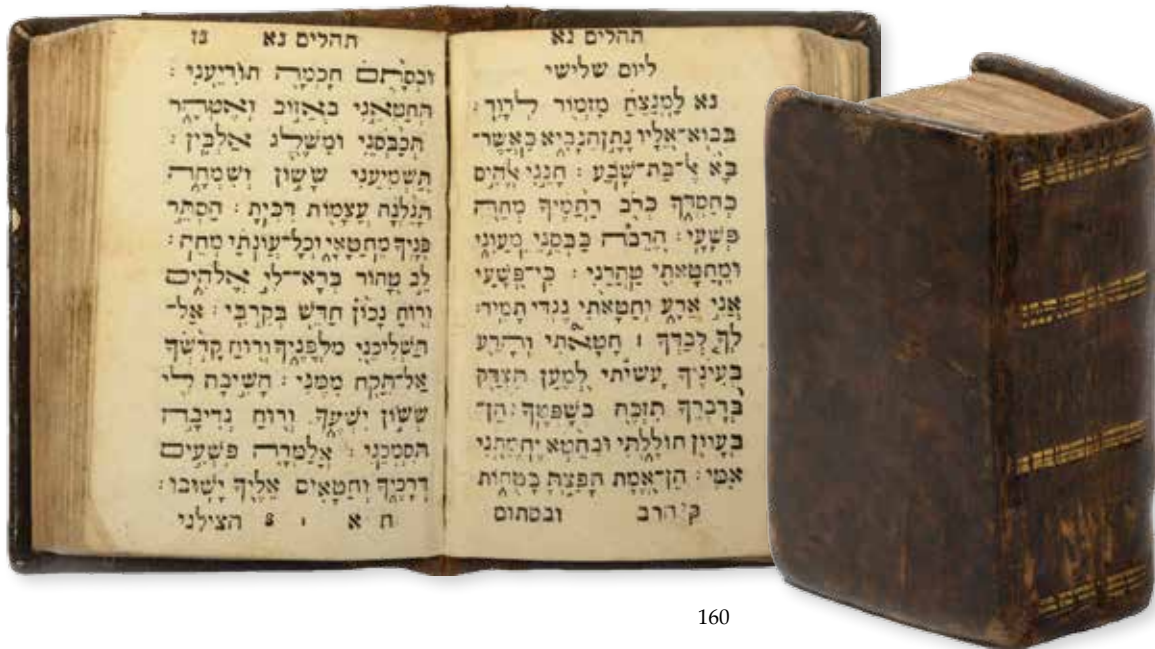 תהלים נא
ליום שלישי
נא לַמְנַצֵּחַ מִזְמוֹר לְדָוִד׃
בְּבוֹא־אֵלָיו נָתָן הַנָּבִיא כַּאֲשֶׁר־
בָּא אֶל־בַּת־שָׁבַע׃ חָנֵּנִי אֱלֹהִים
כְּחַסְדֶּךָ כְּרֹב רַחֲמֶיךָ מְחֵה
פְשָׁעָי׃ הַרְבֵּה כַּבְּסֵנִי מֵעֲוֹנִי
וּמֵחַטָּאתִי טַהֲרֵנִי׃ כִּי־פְשָׁעַי
אֲנִי אֵדָע וְחַטָּאתִי נֶגְדִּי תָמִיד׃
לְךָ לְבַדְּךָ ׀ חָטָאתִי וְהָרַע
בְּעֵינֶיךָ עָשִׂיתִי לְמַעַן תִּצְדַּק
בְּדָבְרֶךָ תִּזְכֶּה בְשָׁפְטֶךָ׃ הֵן־
בְּעָווֹן חוֹלָלְתִּי וּבְחֵטְא יֶחֱמַתְנִי
אִמִּי׃ הֵן־אֱמֶת חָפַצְתָּ בַטֻּחוֹת
ק׳ הרב ובסתום
תהלים נא נז
וּבְסָתֻם חָכְמָה תוֹדִיעֵנִי׃
תְּחַטְּאֵנִי בְאֵזוֹב וְאֶטְהָר
תְּכַבְּסֵנִי וּמִשֶּׁלֶג אַלְבִּין׃
תַּשְׁמִיעֵנִי שָׂשׂוֹן וְשִׂמְחָה
תָּגֵלְנָה עֲצָמוֹת דִּכִּיתָ׃ הַסְתֵּר
פָּנֶיךָ מֵחֲטָאָי וְכָל־עֲוֹנֹתַי מְחֵה׃
לֵב טָהוֹר בְּרָא־לִי אֱלֹהִים
וְרוּחַ נָכוֹן חַדֵּשׁ בְּקִרְבִּי׃ אַל־
תַּשְׁלִיכֵנִי מִלְּפָנֶיךָ וְרוּחַ קָדְשְׁךָ
אַל־תִּקַּח מִמֶּנִּי׃ הָשִׁיבָה לִּי
שְׂשׂוֹן יִשְׁעֶךָ וְרוּחַ נְדִיבָה
תִסְמְכֵנִי׃ אֲלַמְּדָה פֹשְׁעִים
דְּרָכֶיךָ וְחַטָּאִים אֵלֶיךָ יָשׁוּבוּ׃
ח א 8 הצילני
160